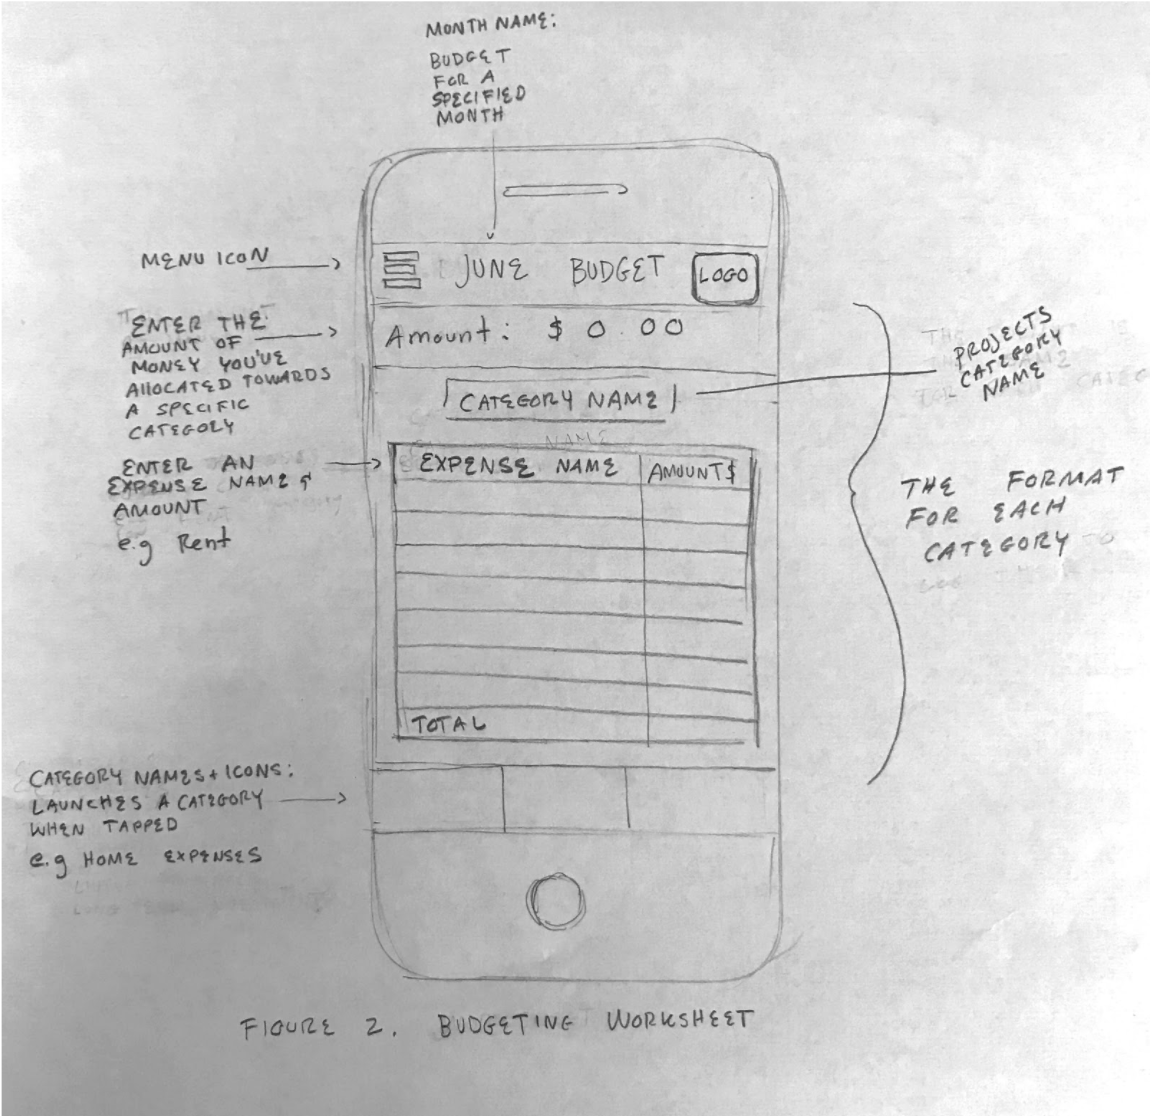 MONTH NAME:
BUDGET
FOR A
SPECIFIED
MONTH
MENU ICON
JUNE BUDGET
LOGO
ENTER THE
AMOUNT OF
MONEY YOU'VE
ALLOCATED TOWARDS
A SPECIFIC
CATEGORY
Amount: $ 0.00
PROJECTS
CATEGORY
NAME
CATEGORY NAME
ENTER AN
EXPENSE NAME &
AMOUNT
e.g Rent
EXPENSE NAME
AMOUNT $
THE FORMAT
FOR EACH
CATEGORY
TOTAL
CATEGORY NAMES + ICONS:
LAUNCHES A CATEGORY
WHEN TAPPED
e.g HOME EXPENSES
FIGURE 2. BUDGETING WORKSHEET